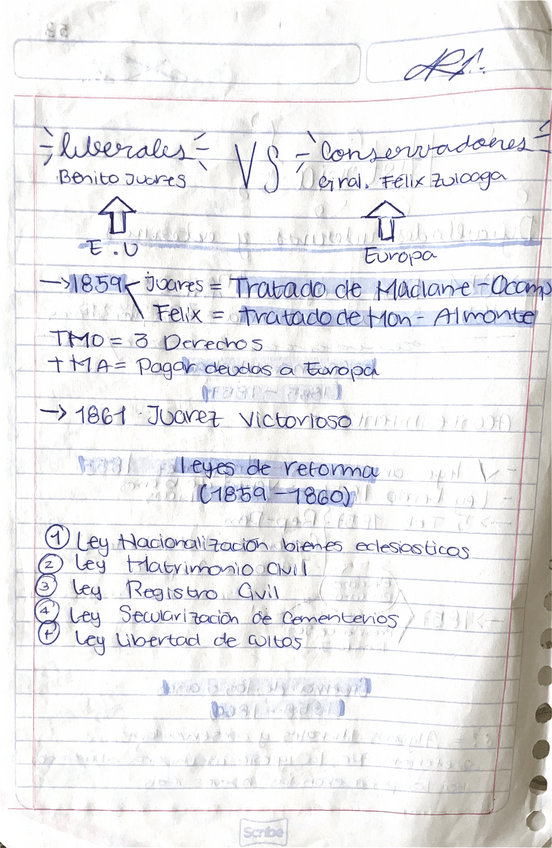 liberales VS Conservadores
Benito Juares Gral. Félix Zuloaga
E.U Europa
→1859 Juares = Tratado de Maclane-Ocamp
Felix = tratado de Mon-Almonte
TMO = 3 Derechos
TMA = Pagar deudas a Europa
→ 1861 Juarez Victorioso
leyes de reforma
(1859-1860)
① Ley Nacionalización bienes eclesiasticos
② Ley Matrimonio Civil
③ Ley Registro Civil
④ Ley Secularización de Cementerios
Ley Libertad de cultos
Scribe